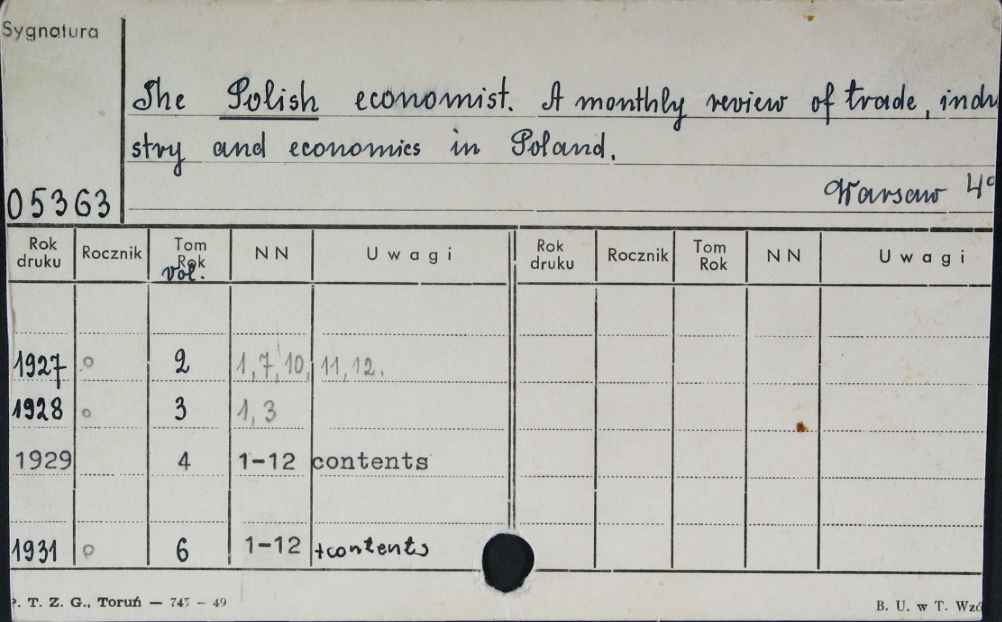 Sygnatura
The Polish economist. A monthly review of trade, indu
stry and economics in Poland.
05363 Warsaw 4°
Rok druku Rocznik Tom Rok vol. NN Uwagi Rok druku Rocznik Tom Rok NN Uwagi
1927 o 2 1, 7, 10, 11, 12.
1928 o 3 1, 3
1929 4 1-12 contents
1931 o 6 1-12 +contents
P. T. Z. G., Toruń — 745 — 49 B. U. w T. Wzó